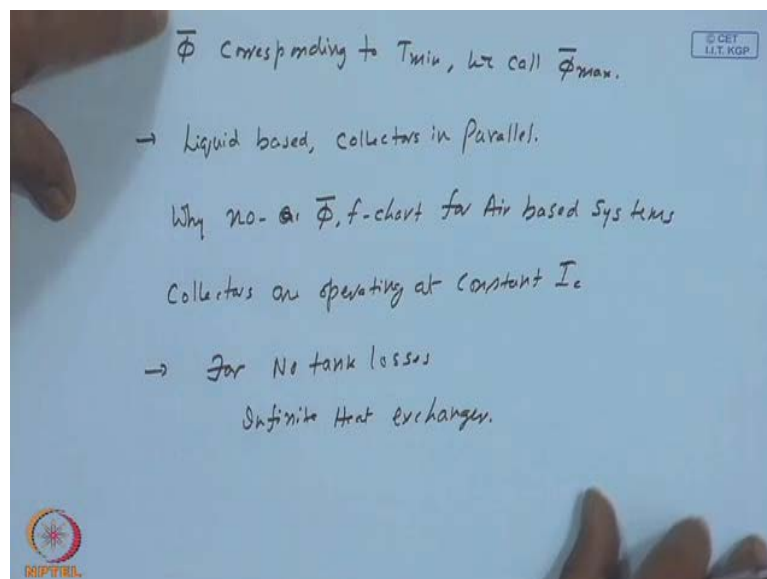 ϕ̅ Corresponding to Tmin, we call ϕ̅max.
© CET
I.I.T. KGP
→ Liquid based, Collectors in Parallel.
Why no ϕ̅, f-chart for Air based Systems
Collectors are operating at Constant Ic
→ For No tank losses
Infinite Heat exchanger.
NPTEL